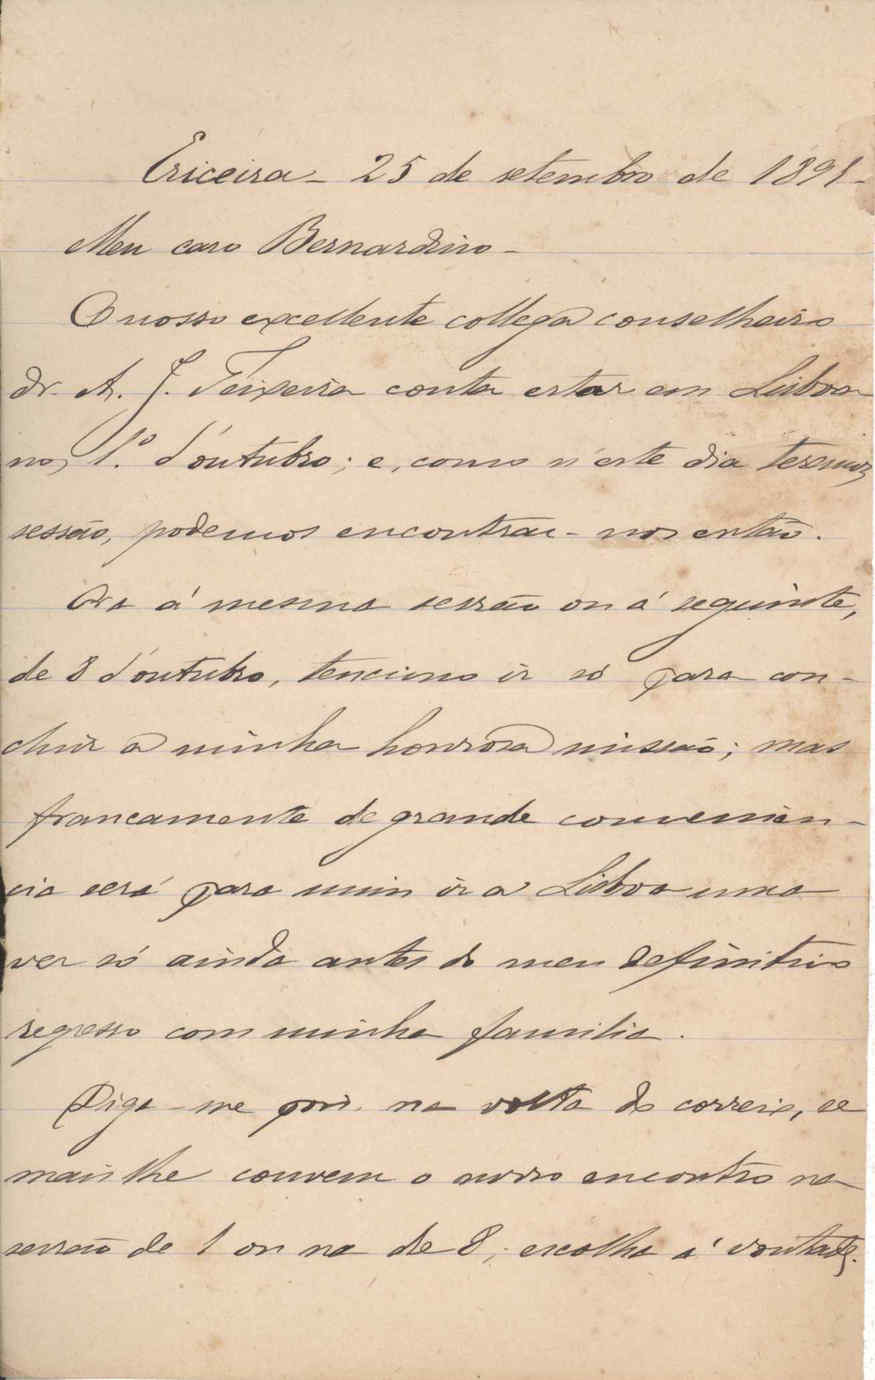 Ericeira - 25 de setembro de 1891 -
Meu caro Bernardino -
O nosso excellente collega conselheiro
dr. A. J. Teixeira conta estar em Lisboa
no 1.º d'outubro; e, como n'este dia teremos
sessão, podemos encontrar-nos então.
Ora á mesma sessão ou á seguinte,
de 8 d'outubro, tenciono ir só para con-
cluir a minha honrosa missão; mas
francamente de grande convenien-
cia será para mim ir a Lisboa uma
vez só ainda antes do meu definitivo
regresso com minha familia.
Diga-me pois, na volta do correio, se
mais lhe convem o nosso encontro na
sessão de 1 ou na de 8; escolha á vontade.